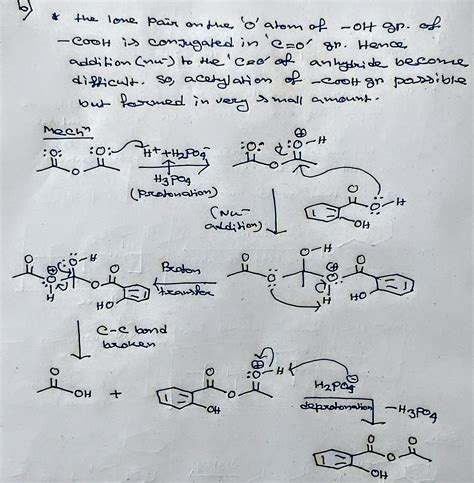 b)
* the lone pair on the 'O' atom of -OH gr. of
-COOH is conjugated in 'C=O' gr. Hence
addition (nu-) to the 'C=O' of anhydride become
difficult. so, acetylation of -COOH gr possible
but formed in very small amount.
Mechn
:O: :O: H+ + H2PO4- :O: :O-H
O H3PO4 O
(Protonation)
O O-H
OH
(Nu-
addition)
O O-H O Proton O O-H O
O O transfer O O
H HO H HO
C-C bond
broken
O O O-H H2PO4-
OH + O deprotonation -H3PO4
OH
O O
O
OH